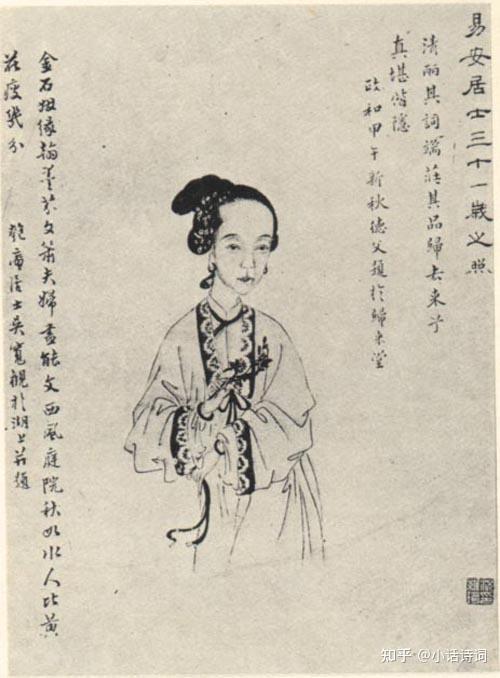 易安居士三十一歲之照
清麗其詞端莊其品歸去來兮
真堪偕隱
政和甲午新秋德父題於歸來堂
金石姻緣翰墨芬文簫夫婦盡能文西風庭院秋如水人比黃
花瘦幾分
匏庵居士吳寬觀於湖上並題
知乎 @小话诗词